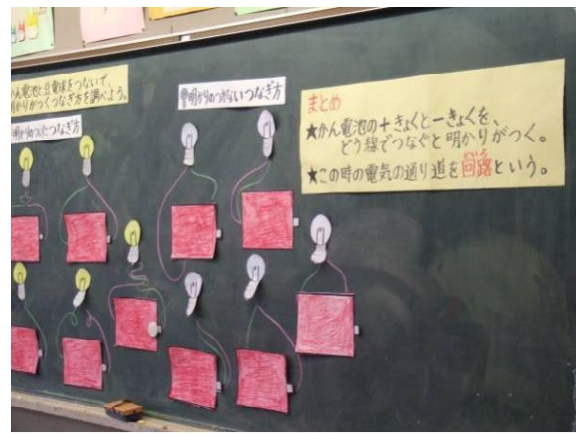 かん電池と豆電球をつないで、
明かりがつくつなぎ方を調べよう。
明かりのついたつなぎ方
明かりのつかないつなぎ方
まとめ
★かん電池の+きょくと-きょくを、
どう線でつなぐと明かりがつく。
★この時の電気の通り道を回路という。